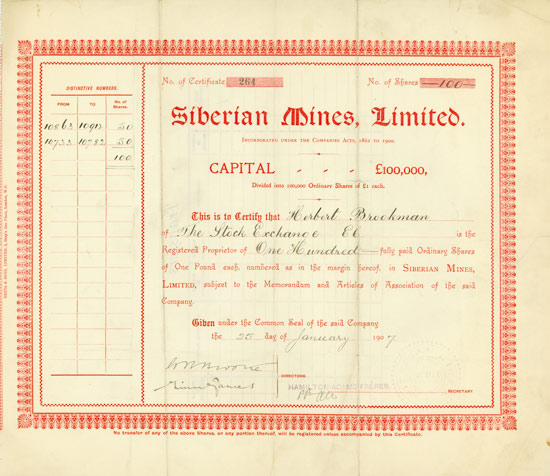 No. of Certificate 264 No. of Shares 100
DISTINCTIVE NUMBERS.
FROM TO No. of Shares.
10863 10912 50
10733 10782 50
100
Siberian Mines, Limited.
INCORPORATED UNDER THE COMPANIES ACTS, 1862 TO 1900.
CAPITAL - - - £100,000,
Divided into 100,000 Ordinary Shares of £1 each.
This is to Certify that Herbert Brookman
of The Stock Exchange EC is the
Registered Proprietor of One Hundred fully paid Ordinary Shares
of One Pound each, numbered as in the margin hereof, in SIBERIAN MINES,
LIMITED, subject to the Memorandum and Articles of Association of the said
Company.
Given under the Common Seal of the said Company
the 25 day of January 1907
DIRECTORS.
HAMILTON
SECRETARY.
No transfer of any of the above Shares, or any portion thereof, will be registered unless accompanied by this Certificate.